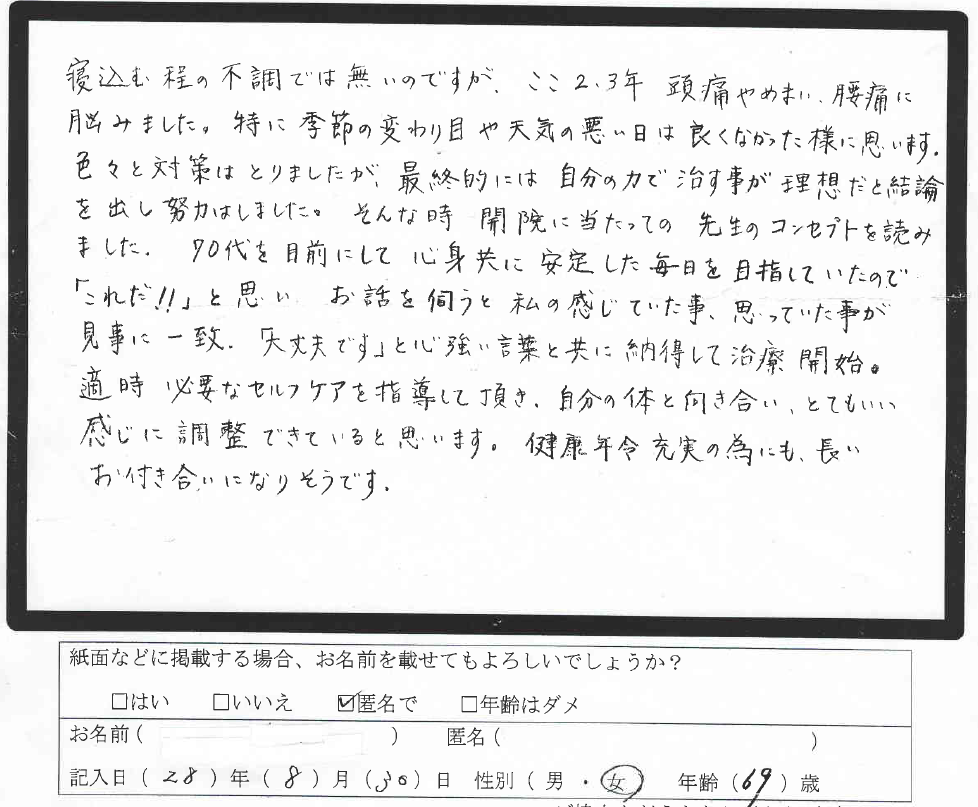 寝込む程の不調では無いのですが、ここ2.3年 頭痛やめまい、腰痛に
脳みました。特に季節の変わり目や天気の悪い日は良くなかった様に思います。
色々と対策はとりましたが、最終的には 自分の力で治す事が理想だと結論
を出し努力はしました。そんな時 開院に当たっての 先生のコンセプトを読み
ました. 70代を目前にして 心身共に安定した毎日を目指していたので
「これだ!!」と思い お話を伺うと私の感じていた事、思っていた事が
見事に一致.「大丈夫です」と心強い言葉と共に納得して治療開始。
適時 必要なセルフケアを指導して頂き、自分の体と向き合い、とてもいい
感じに調整できていると思います。健康年令充実の為にも、長い
お付き合いになりそうです.
紙面などに掲載する場合、お名前を載せてもよろしいでしょうか?
□はい □いいえ ☑匿名で □年齢はダメ
お名前( ) 匿名( )
記入日(28)年(8)月(30)日 性別(男・女) 年齢(69)歳